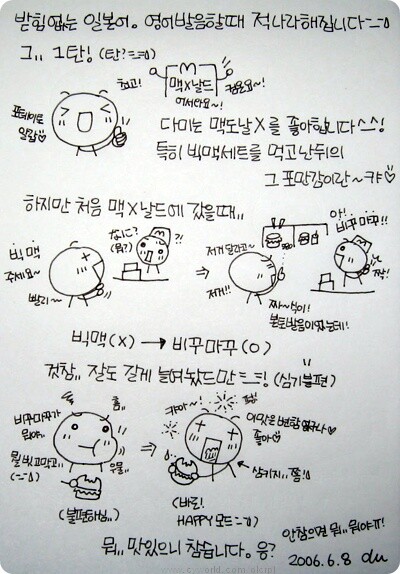 받침없는 일본어. 영어발음할때 적나라해집니다=_=
그.. 1탄! (탄?=_=)
최고!
맥X날드
어서와요~!
컴온요~!
포테이토 일팝♡
다미는 맥도날X를 좋아합니다^^!
특히 빅맥세트를 먹고난뒤의
그 포만감이란~ 캬♡
하지만 처음 맥X날드에 갔을때..
빅맥 주세요~
빨리~
なに?
(뭐?)
?!
⇒
저거 달라고~
저거!!
아!
비꾸마꾸!!
짝!
짜~식이!
본토발음이었는데!
빅맥(X) → 비꾸마꾸(O)
것참.. 잘도 길게 늘여놨드만=_=! (심기불편)
비꾸마꾸가 뭐야..
흠..
뭘 씹고말고..
(-_-)
우물..
(불평하며..)
⇒
캬아~!
이맛은 변함없구나♡
좋아♡
삼키지..쫌!
(바로! HAPPY 모드=_=)
뭐.. 맛있으니 참습니다. 응?
안참으면 뭐.. 뭐야!!
2006.6.8
www.cyworld.com